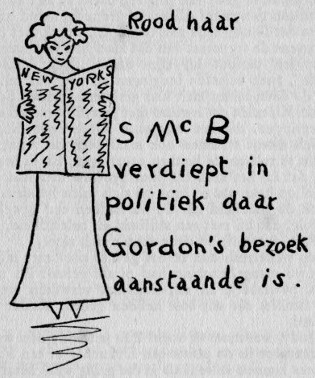 Rood haar
NEW YORKS
S McB
verdiept in
politiek daar
Gordon's bezoek
aanstaande is.